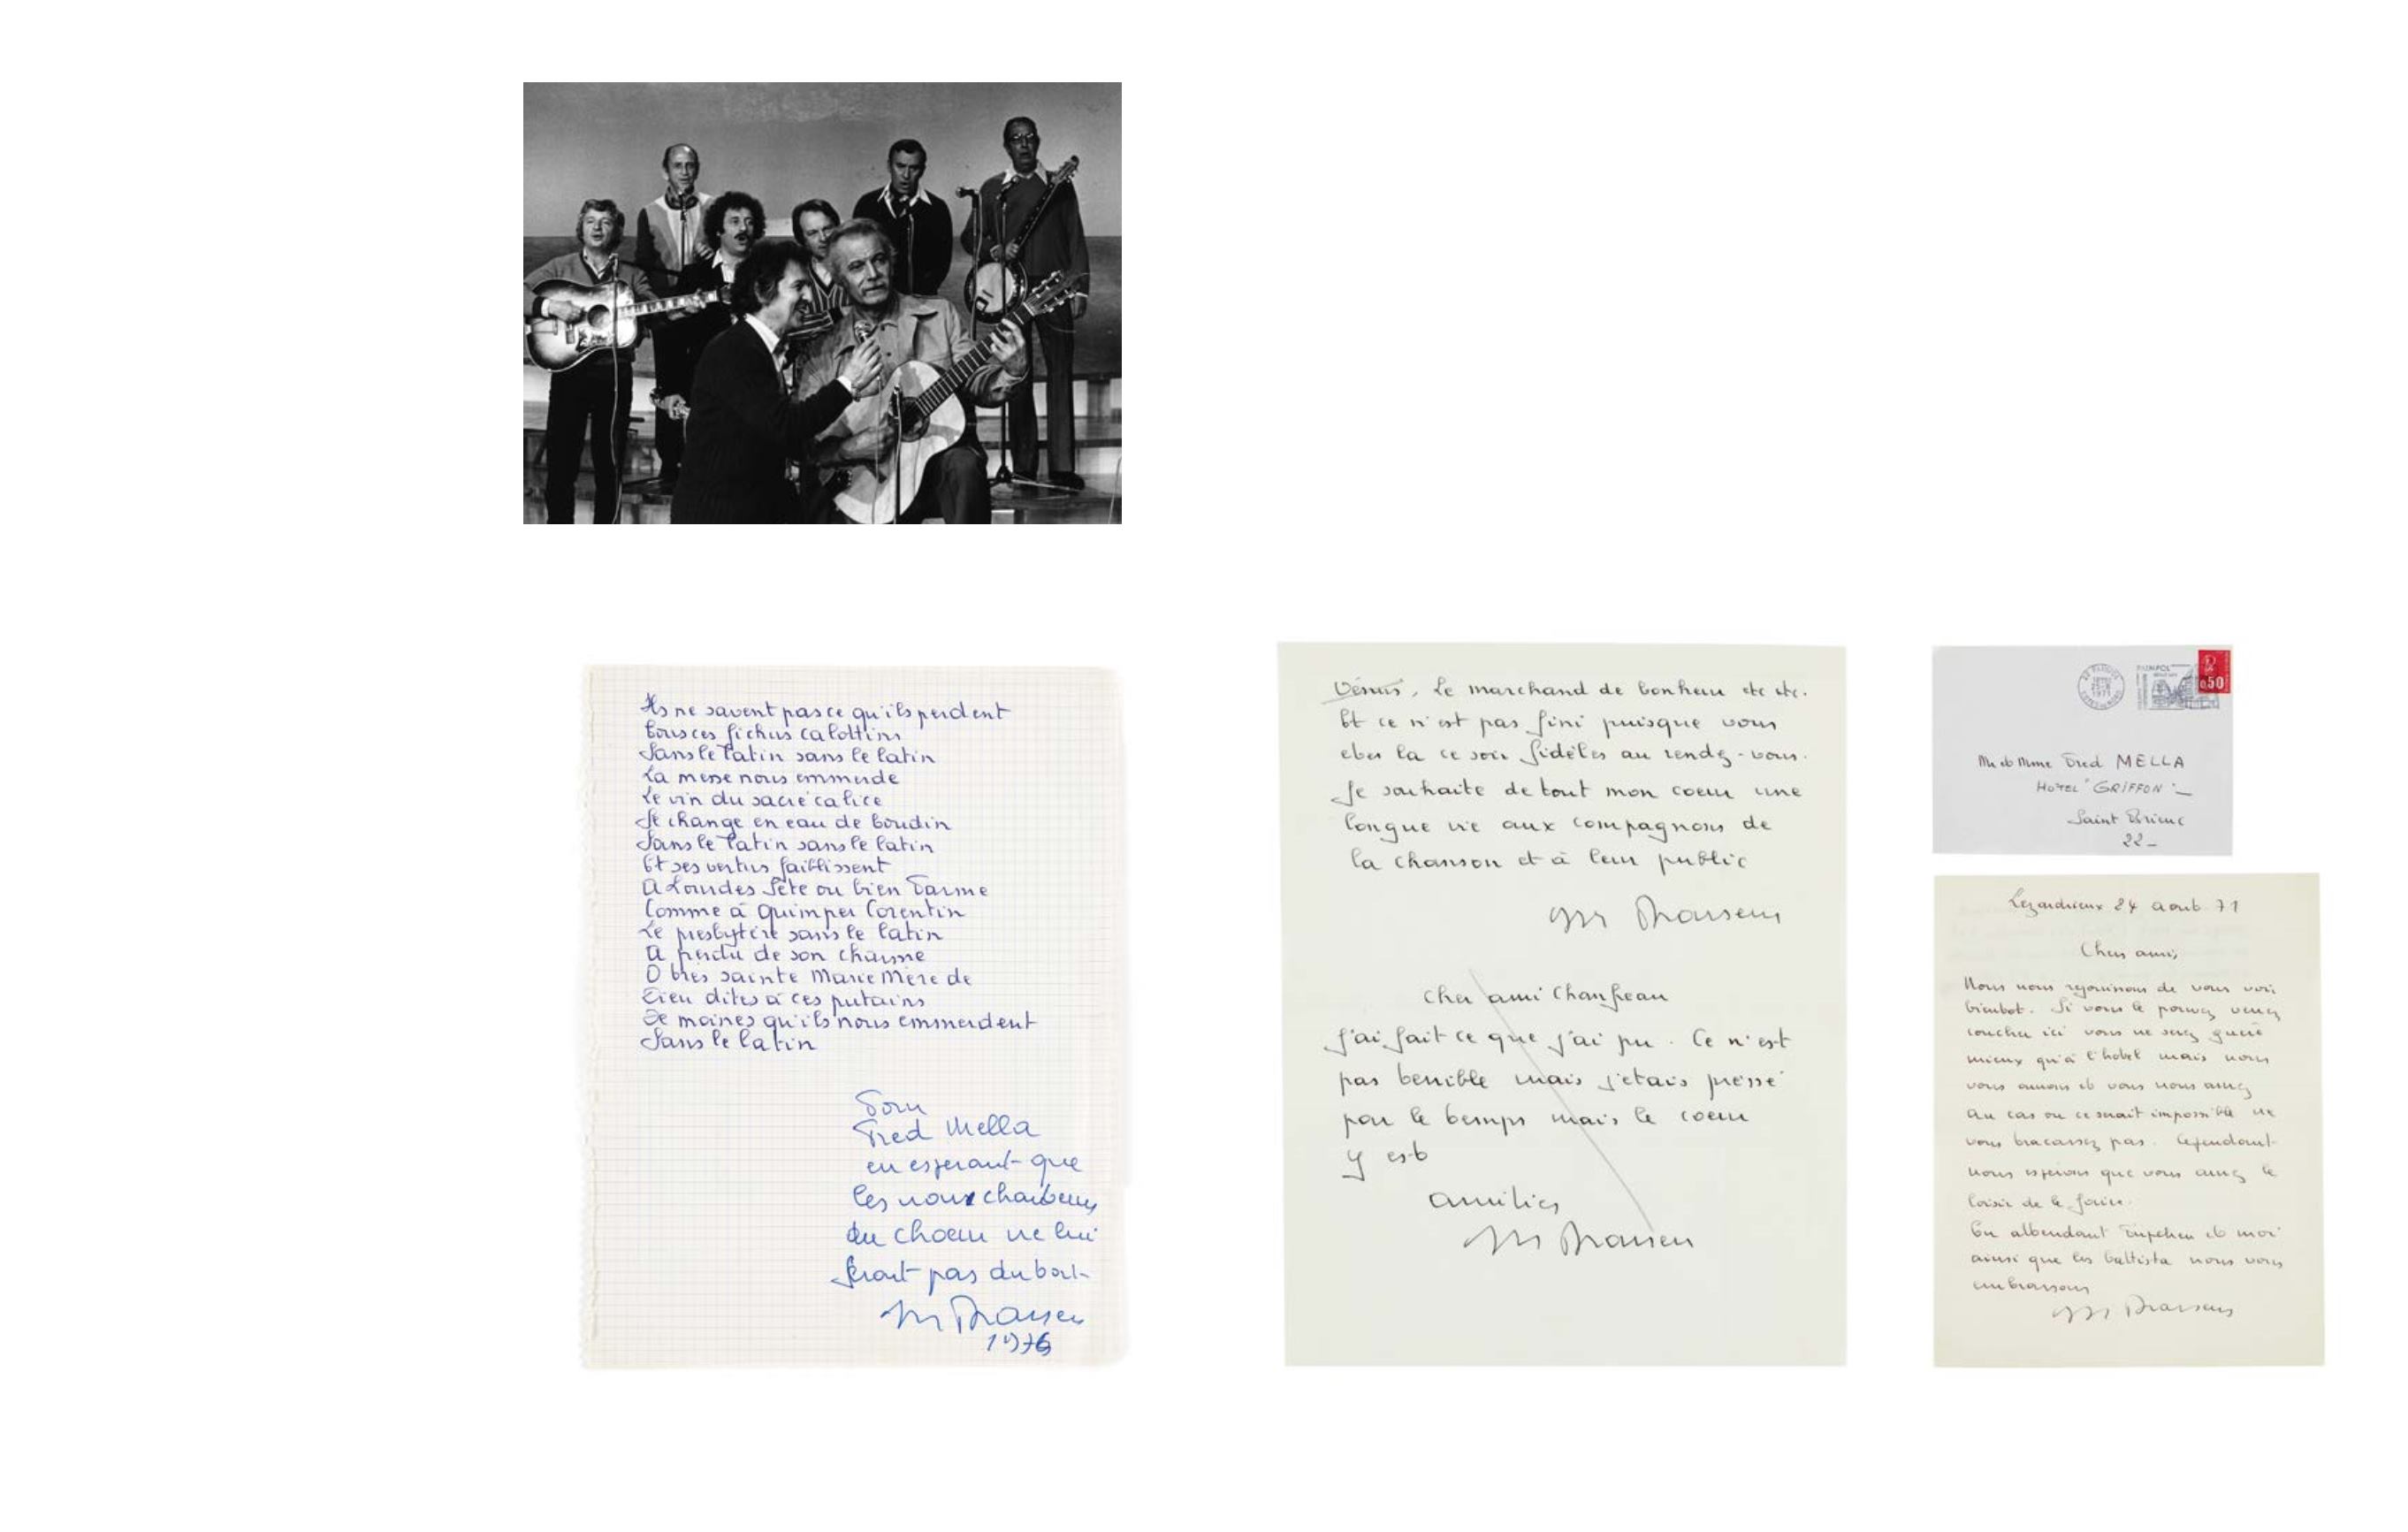 Ils ne savent pas ce qu'ils perdent
tous ces fichus calottins
Sans le latin sans le latin
La messe nous emmerde
Le vin du sacré calice
Se change en eau de boudin
Sans le latin sans le latin
Et ses vertus faiblissent
A Lourdes Sète ou bien Parme
Comme à Quimper Corentin
Le presbytère sans le latin
A perdu de son charme
O très sainte Marie Mère de
Dieu dites à ces putains
De moines qu'ils nous emmerdent
Sans le latin
Pour
Fred Mella
en esperant que
les vieux chanteurs
du choeur ne lui
feront pas du tort
G Brassens
1976
Vénus, Le marchand de bonheur etc etc.
Et ce n'est pas fini puisque vous
etes la ce soir fidèles au rendez-vous.
Je souhaite de tout mon coeur une
longue vie aux compagnons de
la chanson et à leur public
G Brassens
Cher ami Chanfreau
J'ai fait ce que j'ai pu. Ce n'est
pas terrible mais j'etais pressé
par le temps mais le coeur
y est
amitiés
G Brassens
PAIMPOL
0,50
Mr et Mme Fred MELLA
HOTEL "GRIFFON"
Saint Brieuc
22
Lezardrieux 24 aout 71
Chers amis,
Nous nous rejouissons de vous voir
bientot. Si vous le pouvez venez
coucher ici vous ne serez guère
mieux qu'à l'hotel mais nous
vous aimons et vous nous aimez
Au cas ou ce serait impossible ne
vous tracassez pas. Cependant
nous espérons que vous aurez le
loisir de le faire.
En attendant Pupchen et moi
ainsi que les Battista nous vous
embrassons
G Brassens